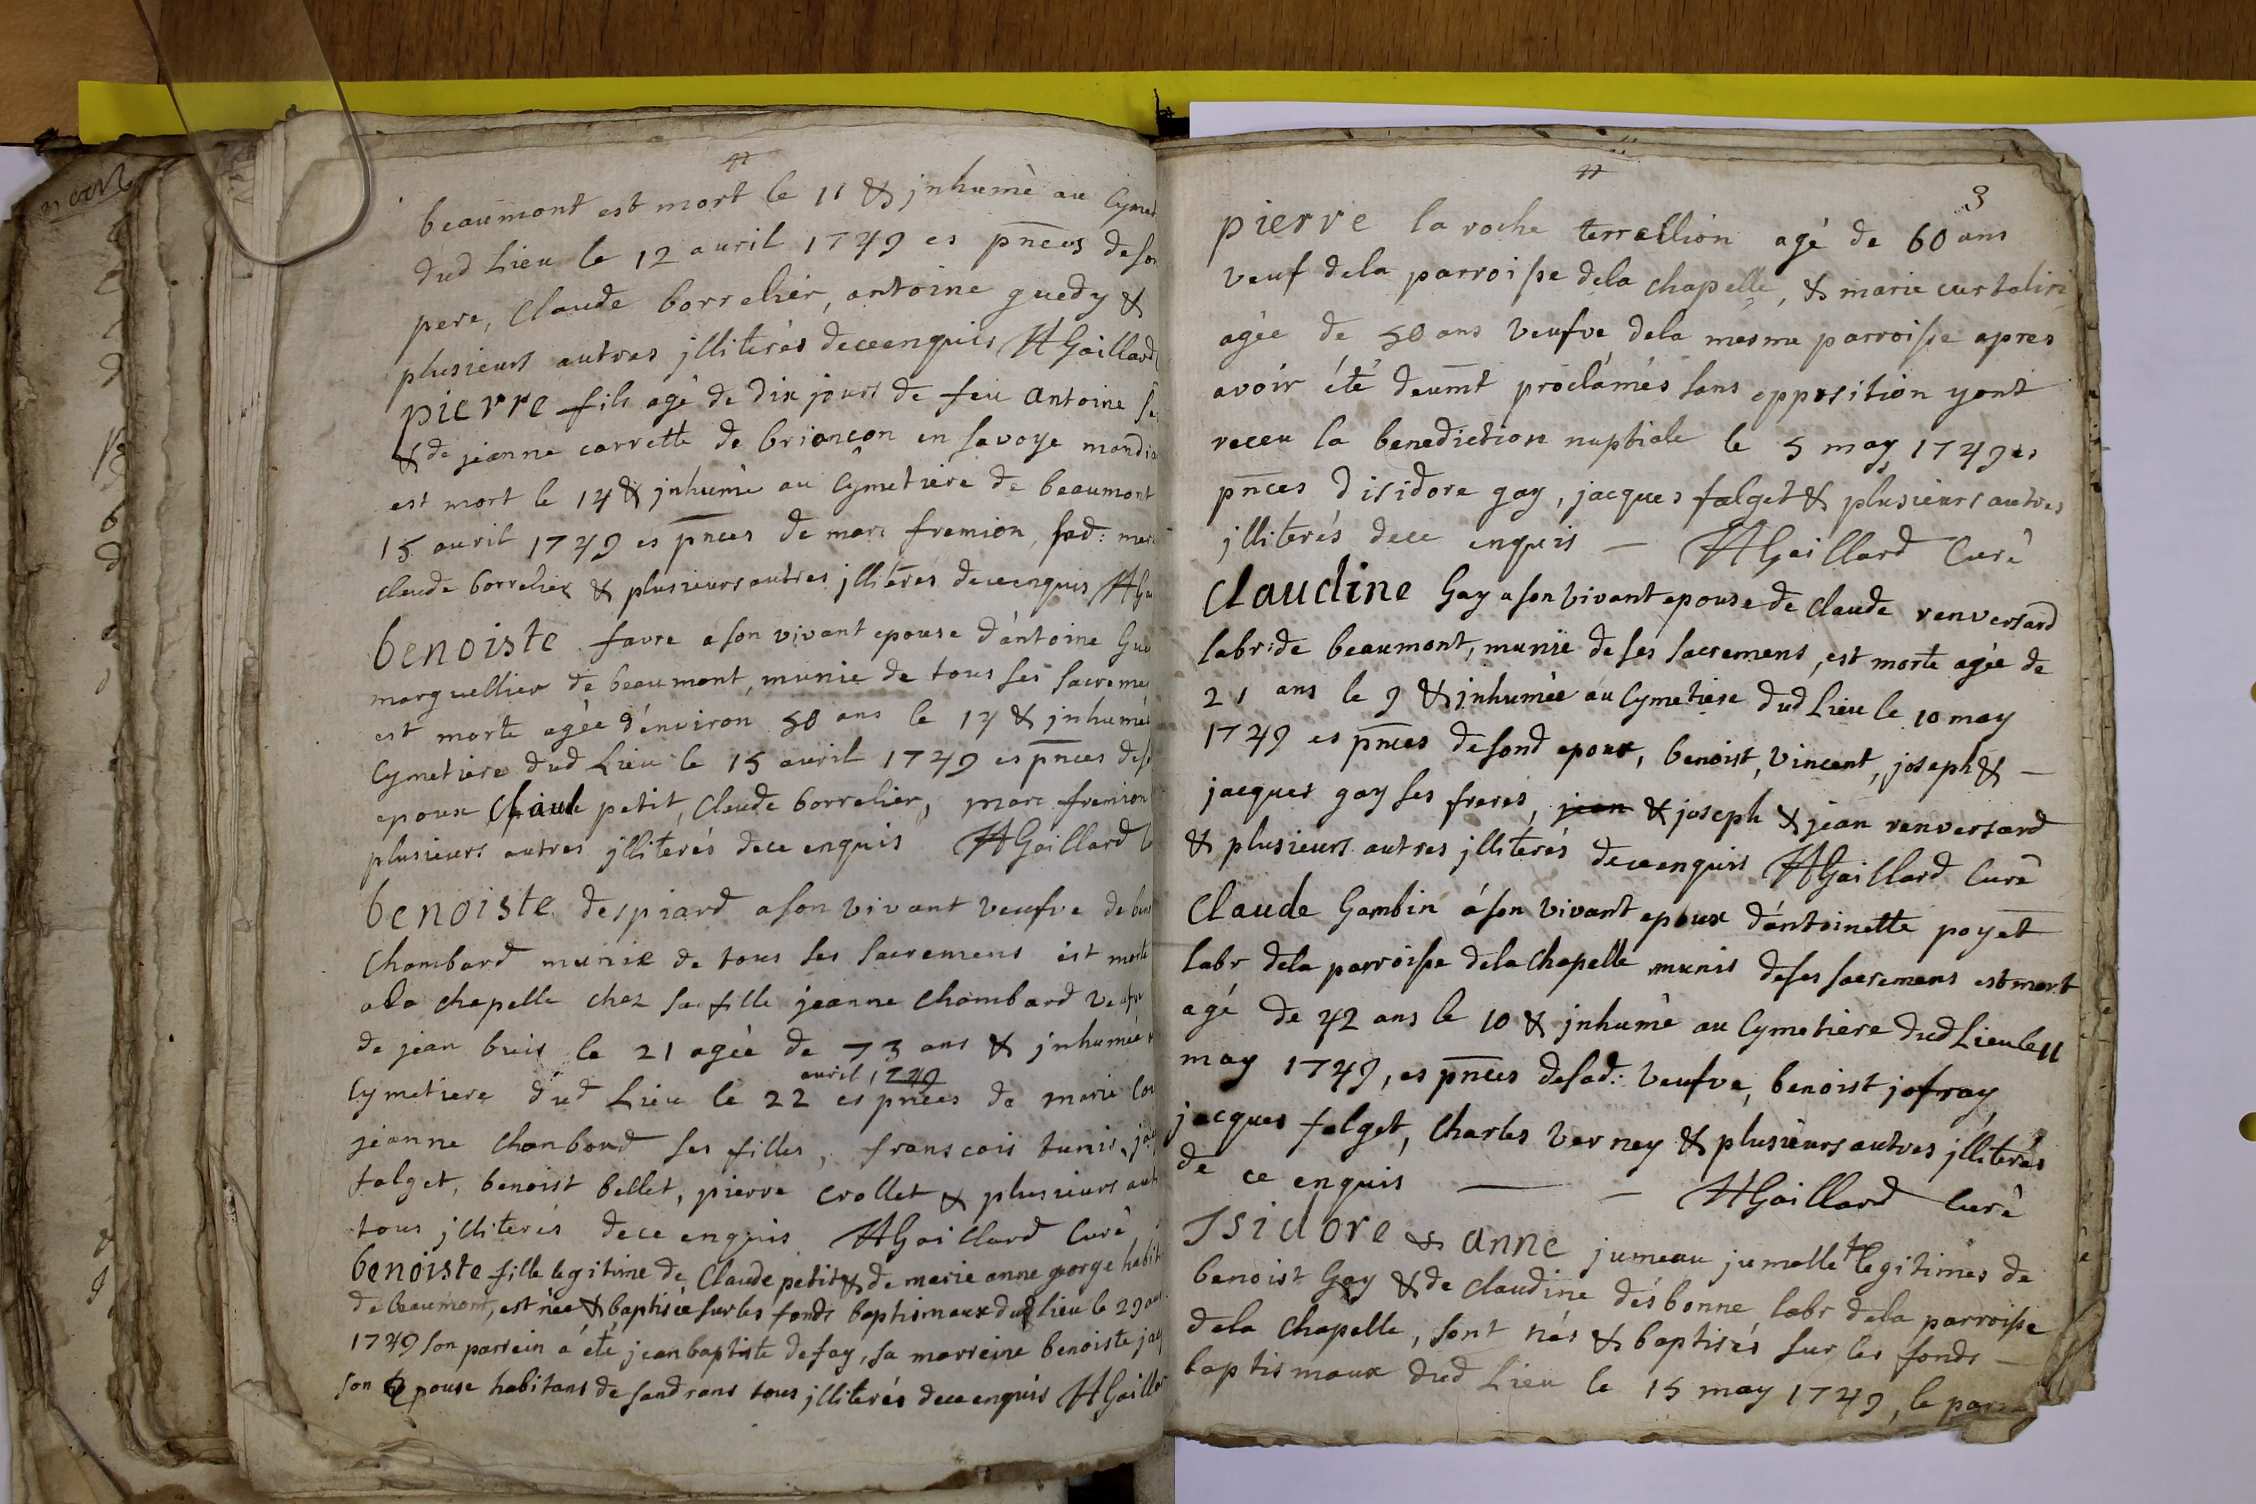 beaumont est mort le 11 & jnhumè au Cymet
dud Lieu le 12 auril 1749 es pnces de son
pere, Claude borrelier, antoine guedy &
plusieurs autres jlliterés dece enquis HGaillard
pierre fils agé de dix jours de feu antoine
& de jeanne carrette de briançon en savoye mandia
est mort le 14 & jnhumé au Cymetiere de beaumont
15 auril 1749 es pnces de marc fremion, sad: mer
claude borrelier & plusieurs autres jlliterés dece enquis HGa
benoiste favre a son vivant epouse d'antoine Gue
marguellier de beaumont, munie de tous ses sacremen
est morte agée d'environ 50 ans le 14 & jnhumée
Cymetiere dud Lieu le 15 auril 1749 es pnces de s
epoux Claude petit, Claude borrelier, marc fremion
plusieurs autres jlliterés dece enquis HGaillard
benoiste despiard a son vivant veufve de ben
Chambard munie de tous ses sacremens est morte
a la chapelle chez sa fille jeanne Chambard veufve
de jean buis le 21 agée de 73 ans & jnhumée
auril 1749
Cymetiere dud Lieu le 22 es pnces de marie
jeanne Chanbard ses filles, franscois tunis, ja
falget, benoist bellet, pierre crollet & plusieurs aut
tous jlliterés dece enquis HGaillard Curé
benoiste fille legitime de Claude petit & de marie anne george habit
de beaumont, est née & baptisée sur les fonds baptismaux dud lieu le 29 au
1749 son parrein a été jean baptiste defay, sa marreine benoiste jac
son epouse habitans de sandrans tous jlliterés dece enquis HGaillar
3
pierre la roche terrellion agé de 60 ans
veuf dela parroisse dela chapelle, & marie curtaliri
agée de 50 ans veufve dela mesme parroisse apres
avoir été deumt proclamés sans opposition yont
receu la benediction nuptiale le 5 may 1749 es
pnces d isidore gay, jacques falget & plusieurs autres
jlliterés dece enquis — HGaillard Curé
Claudine Gay a son vivant epouse de claude renversard
labr: de beaumont, munie de ses sacremens, est morte agée de
21 ans le 9 & jnhumée au Cymetiere dud Lieu le 10 may
1749 es pnces de sond epoux, benoist, vincent, joseph & —
jacques gay ses freres, jean & joseph & jean renversard
& plusieurs autres jlliterés dece enquis HGaillard Curé
Claude Gambin a son vivant epoux d'antoinette poyet
labr dela parroisse dela Chapelle munis de ses sacremens est mort
agé de 42 ans le 10 & jnhumé au Cymetiere dud Lieu le 11
may 1749, es pnces de sad: veufve, benoist jofray
jacques falget, Charles verney & plusieurs autres jlliterés
de ce enquis — — HGaillard Curé
Isidore & anne jumeau jumelle legitimes de
benoist Gay & de claudine désbonne labr dela parroisse
dela Chapelle, sont nés & baptisés sur les fonds —
baptismaux dud Lieu le 15 may 1749, le par